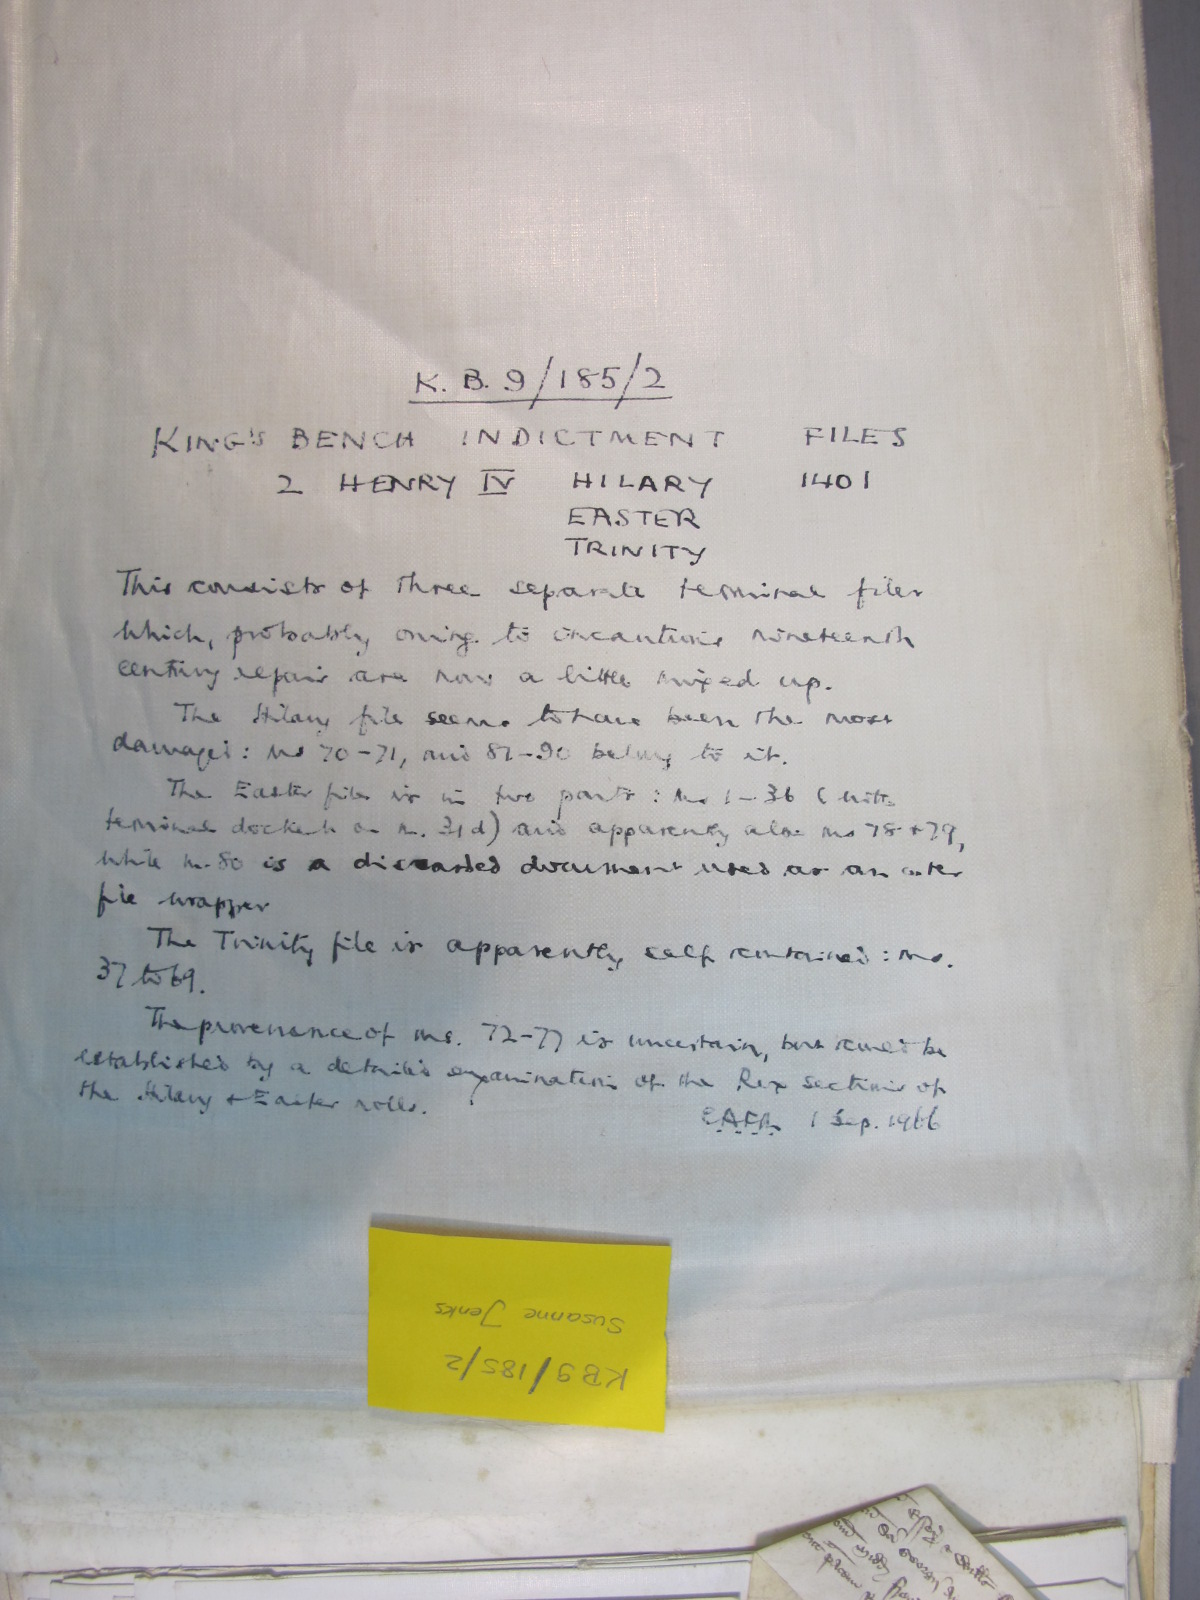 K. B. 9/185/2
KING'S BENCH INDICTMENT FILES
2 HENRY IV HILARY 1401
EASTER
TRINITY
This consists of three separate terminal files
which, probably owing to incautious nineteenth
century repair are now a little mixed up.
The Hilary file seems to have been the most
damaged: ms 70-71, and 81-90 belong to it.
The Easter file is in two parts: ms 1-36 (with
terminal docket on m. 31d) and apparently also ms 78+79,
while m. 80 is a discarded document used as an outer
file wrapper
The Trinity file is apparently self contained: ms.
37 to 69.
The provenance of ms. 72-77 is uncertain, but could be
established by a detailed examination of the Rex sections of
the Hilary + Easter rolls.
1 Sep. 1966
KB9/185/2
Susanne Jenks